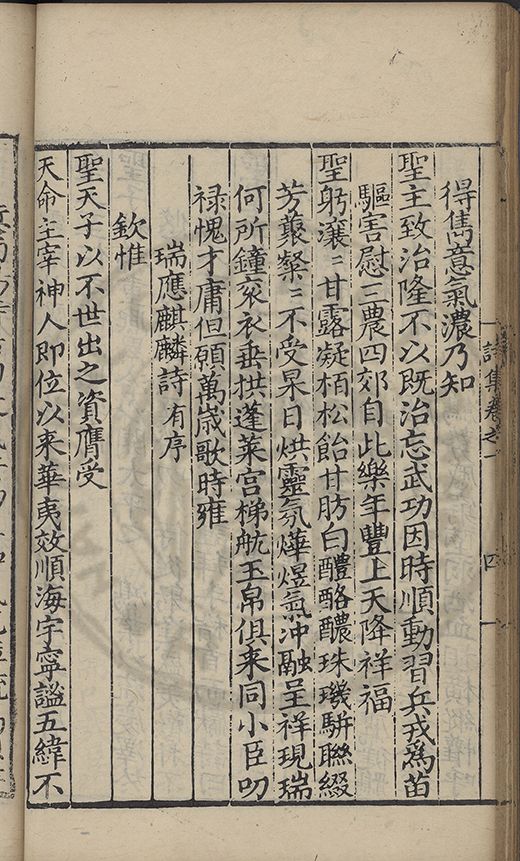 詩集卷之一
四
得雋意氣濃乃知
聖主致治隆不以既治忘武功因時順動習兵戎為苗
驅害慰三農四郊自此樂年豐上天降祥福
聖躬瀼〻甘露凝栢松飴甘肪白醴酪醲珠璣駢聯綴
芳蕤粲〻不受杲日烘靈氛燁煜氣冲融呈祥現瑞
何所鐘袞衣垂拱蓬萊宮梯航玉帛俱来同小臣叨
禄愧才庸但願萬歲歌時雍
瑞應麒麟詩 有序
欽惟
聖天子以不世出之資膺受
天命主宰神人即位以来華夷效順海宇寧謐五緯不